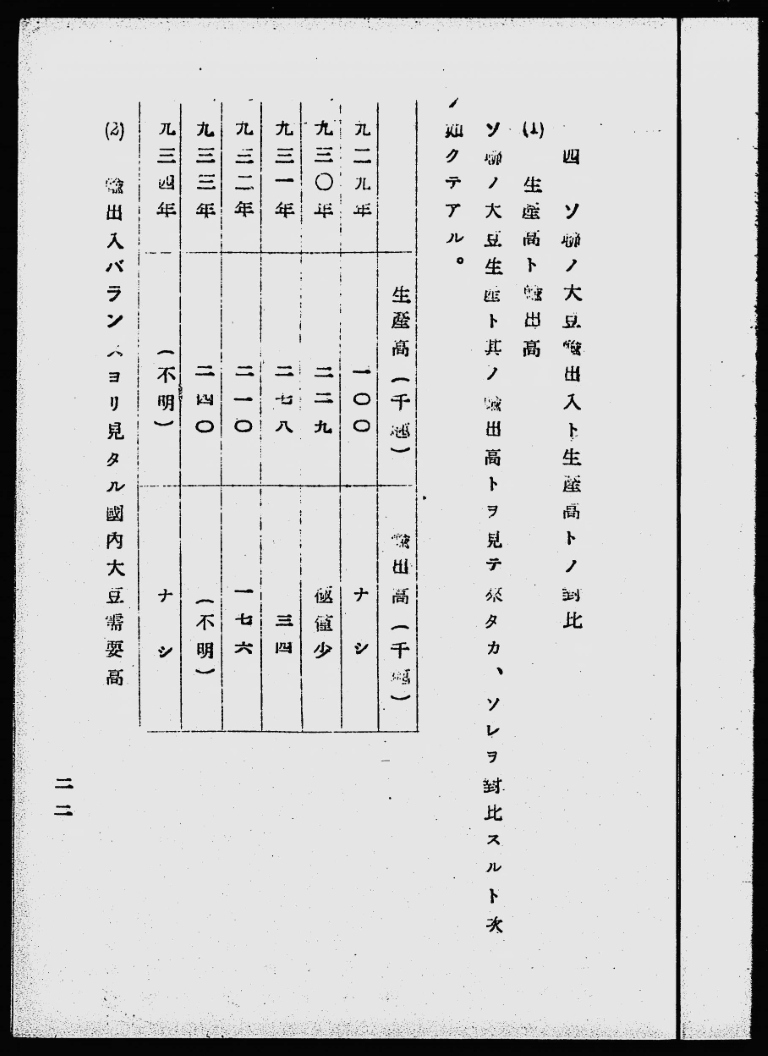 四　ソ聯ノ大豆輸出入ト生産高トノ對比
(1)　生産高ト輸出高
ソ聯ノ大豆生産ト其ノ輸出高トヲ見テ來タカ、ソレヲ對比スルト次
ノ如クテアル。
生産高(千瓲)　輸出高(千瓲)
九二九年　一〇〇　ナシ
九三〇年　二二九　極値少
九三一年　二七八　三四
九三二年　二一〇　一七六
九三三年　二四〇　(不明)
九三四年　(不明)　ナシ
(2)　輸出入バランスヨリ見タル國内大豆需要高
二二